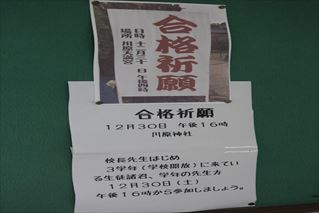 合格祈願
日時 十二月三十日 午後四時
場所 川原天満宮
合格祈願
12月30日 午後16時
川原神社
校長先生はじめ
3学年(学校開放)に来てい
る生徒諸君、学年の先生方
12月30日(土)
午後16時から参加しましょう。